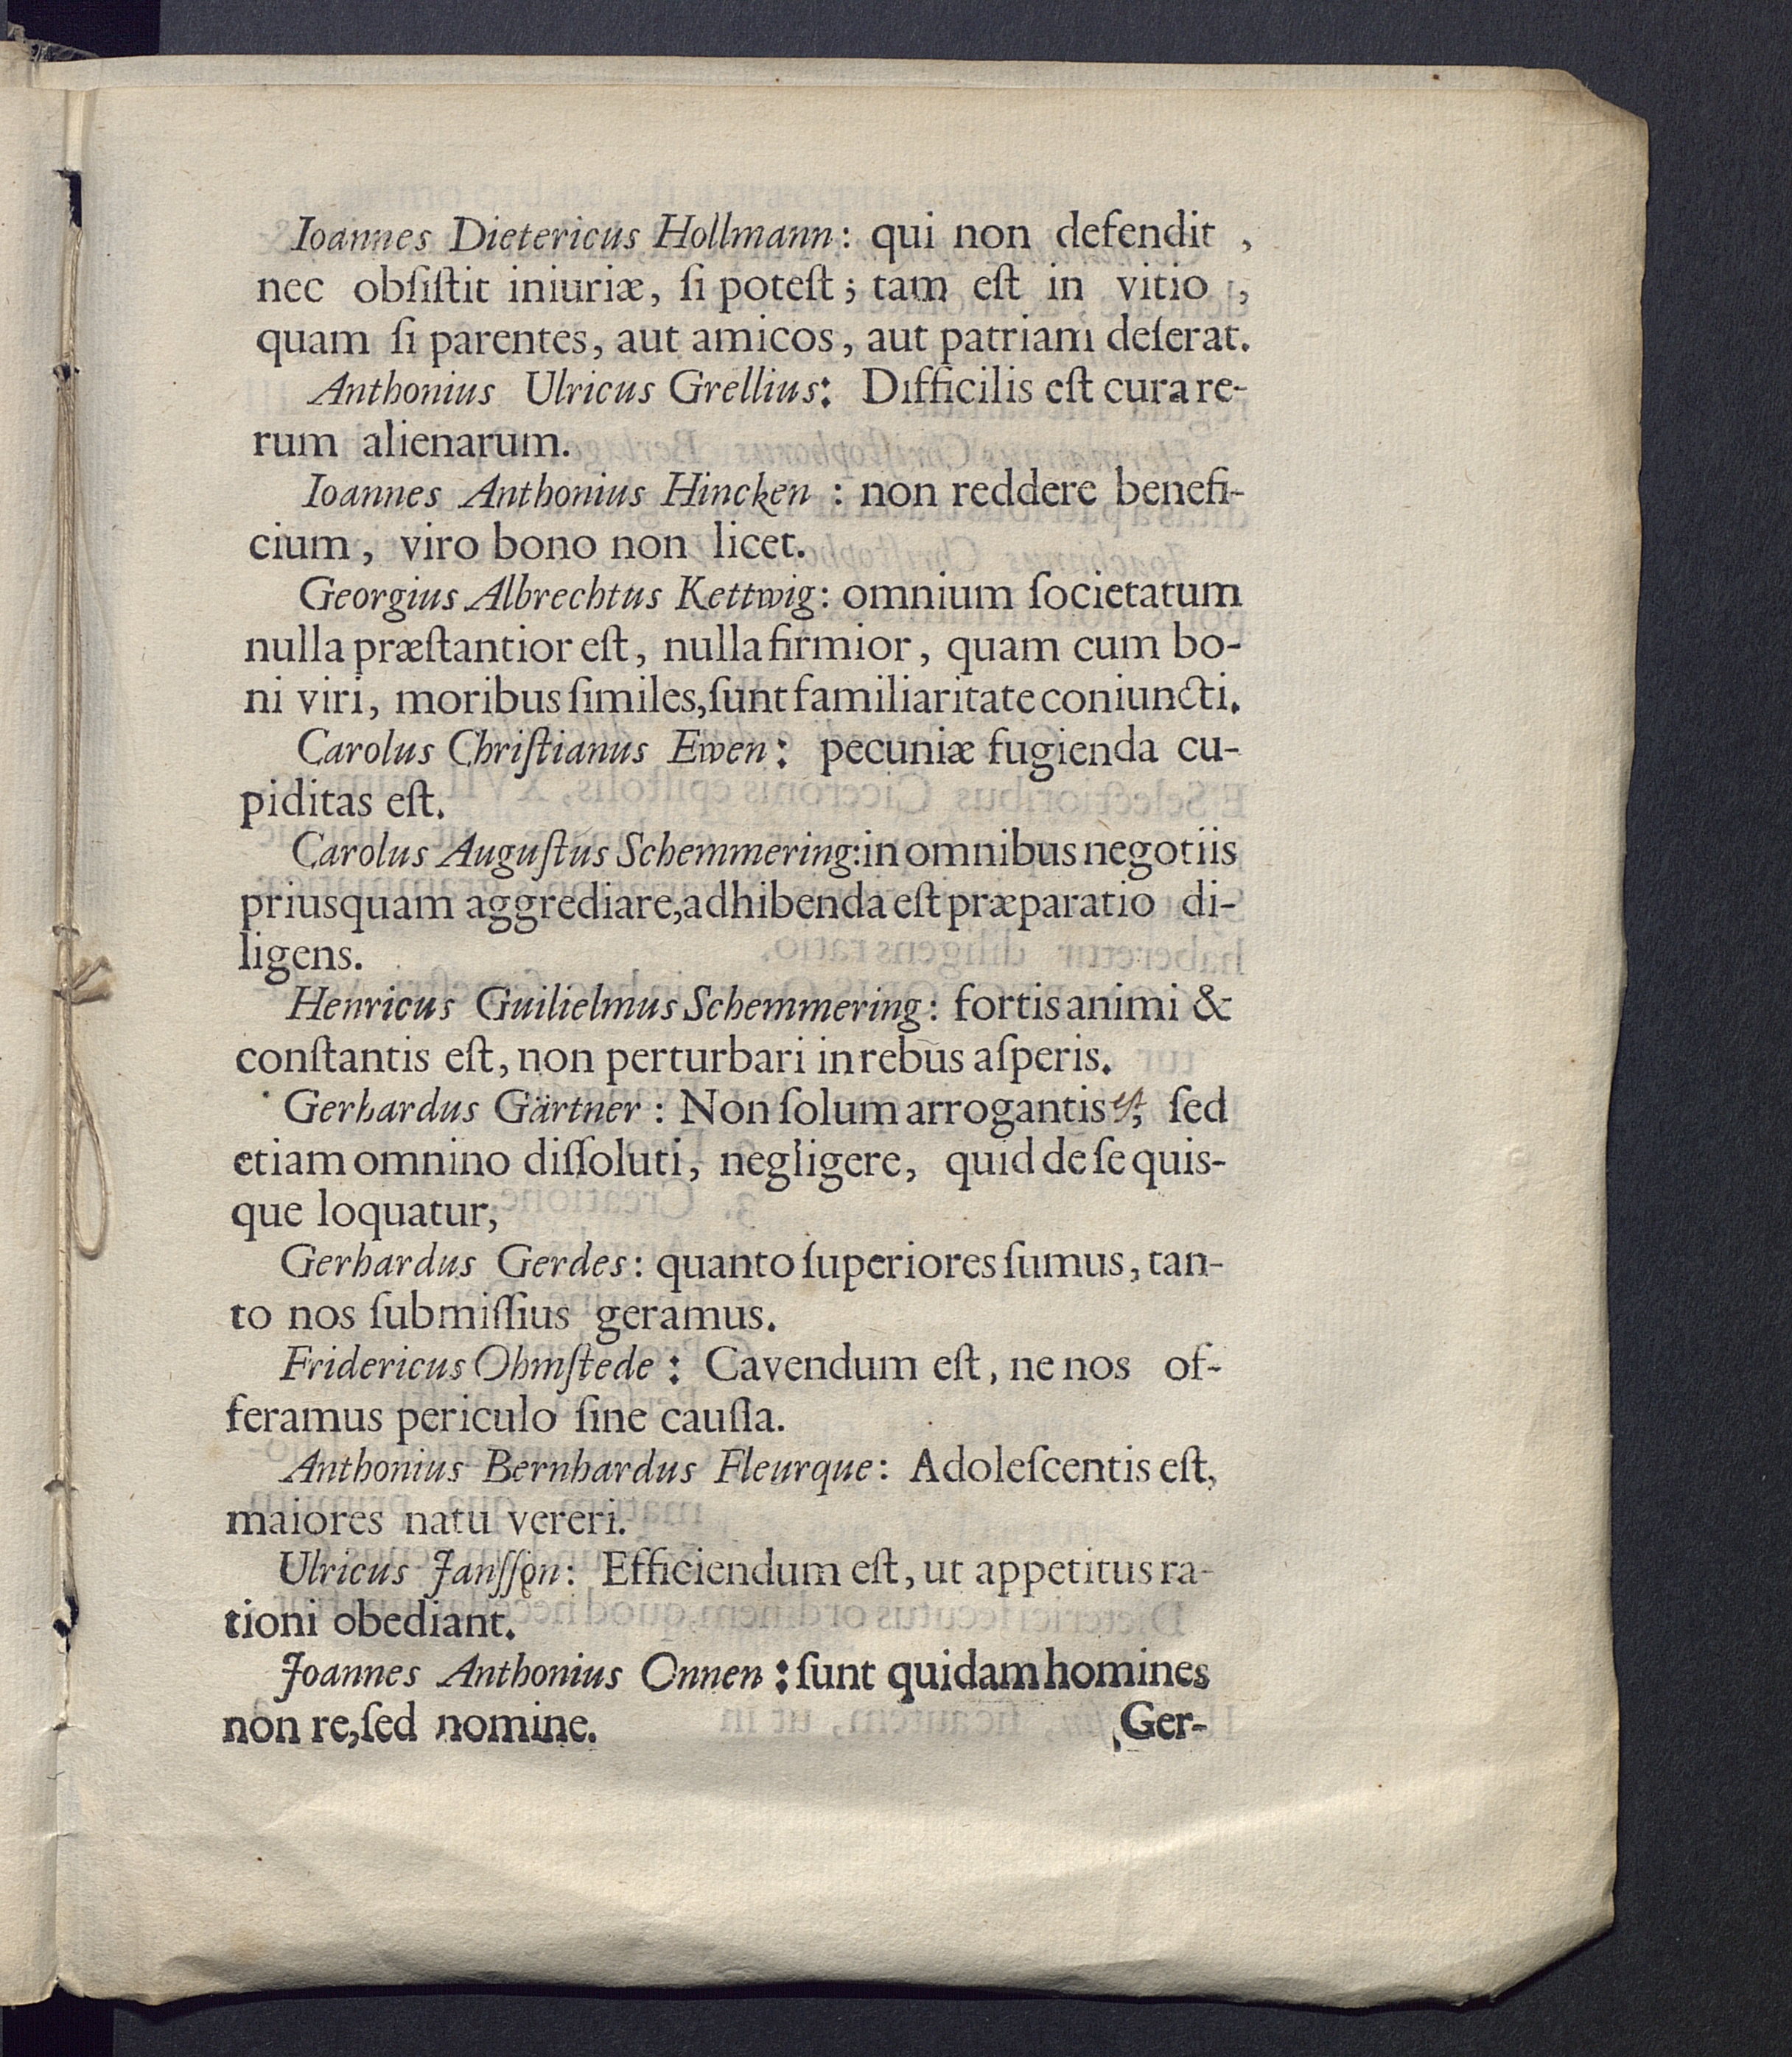 Ioannes Dietericus Hollmann: qui non defendit,
nec obſiſtit iniuriæ, ſi poteſt; tam eſt in vitio,
quam ſi parentes, aut amicos, aut patriam deſerat.
Anthonius Ulricus Grellius: Difficilis eſt cura re-
rum alienarum.
Ioannes Anthonius Hincken: non reddere benefi-
cium, viro bono non licet.
Georgius Albrechtus Kettwig: omnium ſocietatum
nulla præſtantior eſt, nulla firmior, quam cum bo-
ni viri, moribus ſimiles, ſunt familiaritate coniuncti.
Carolus Chriſtianus Ewen: pecuniæ fugienda cu-
piditas eſt.
Carolus Auguſtus Schemmering: in omnibus negotiis
priusquam aggrediare, adhibenda eſt præparatio di-
ligens.
Henricus Guilielmus Schemmering: fortis animi &
conſtantis eſt, non perturbari in rebus aſperis.
Gerhardus Gärtner: Non ſolum arrogantis est, ſed
etiam omnino diſſoluti, negligere, quid de ſe quis-
que loquatur;
Gerhardus Gerdes: quanto ſuperiores ſumus, tan-
to nos ſubmiſſius geramus.
Fridericus Ohmſtede: Cavendum eſt, ne nos of-
feramus periculo ſine cauſſa.
Anthonius Bernhardus Fleurque: Adoleſcentis eſt,
maiores natu vereri.
Ulricus Janſſon: Efficiendum eſt, ut appetitus ra-
tioni obediant.
Joannes Anthonius Onnen: ſunt quidam homines
non re, ſed nomine.
Ger-